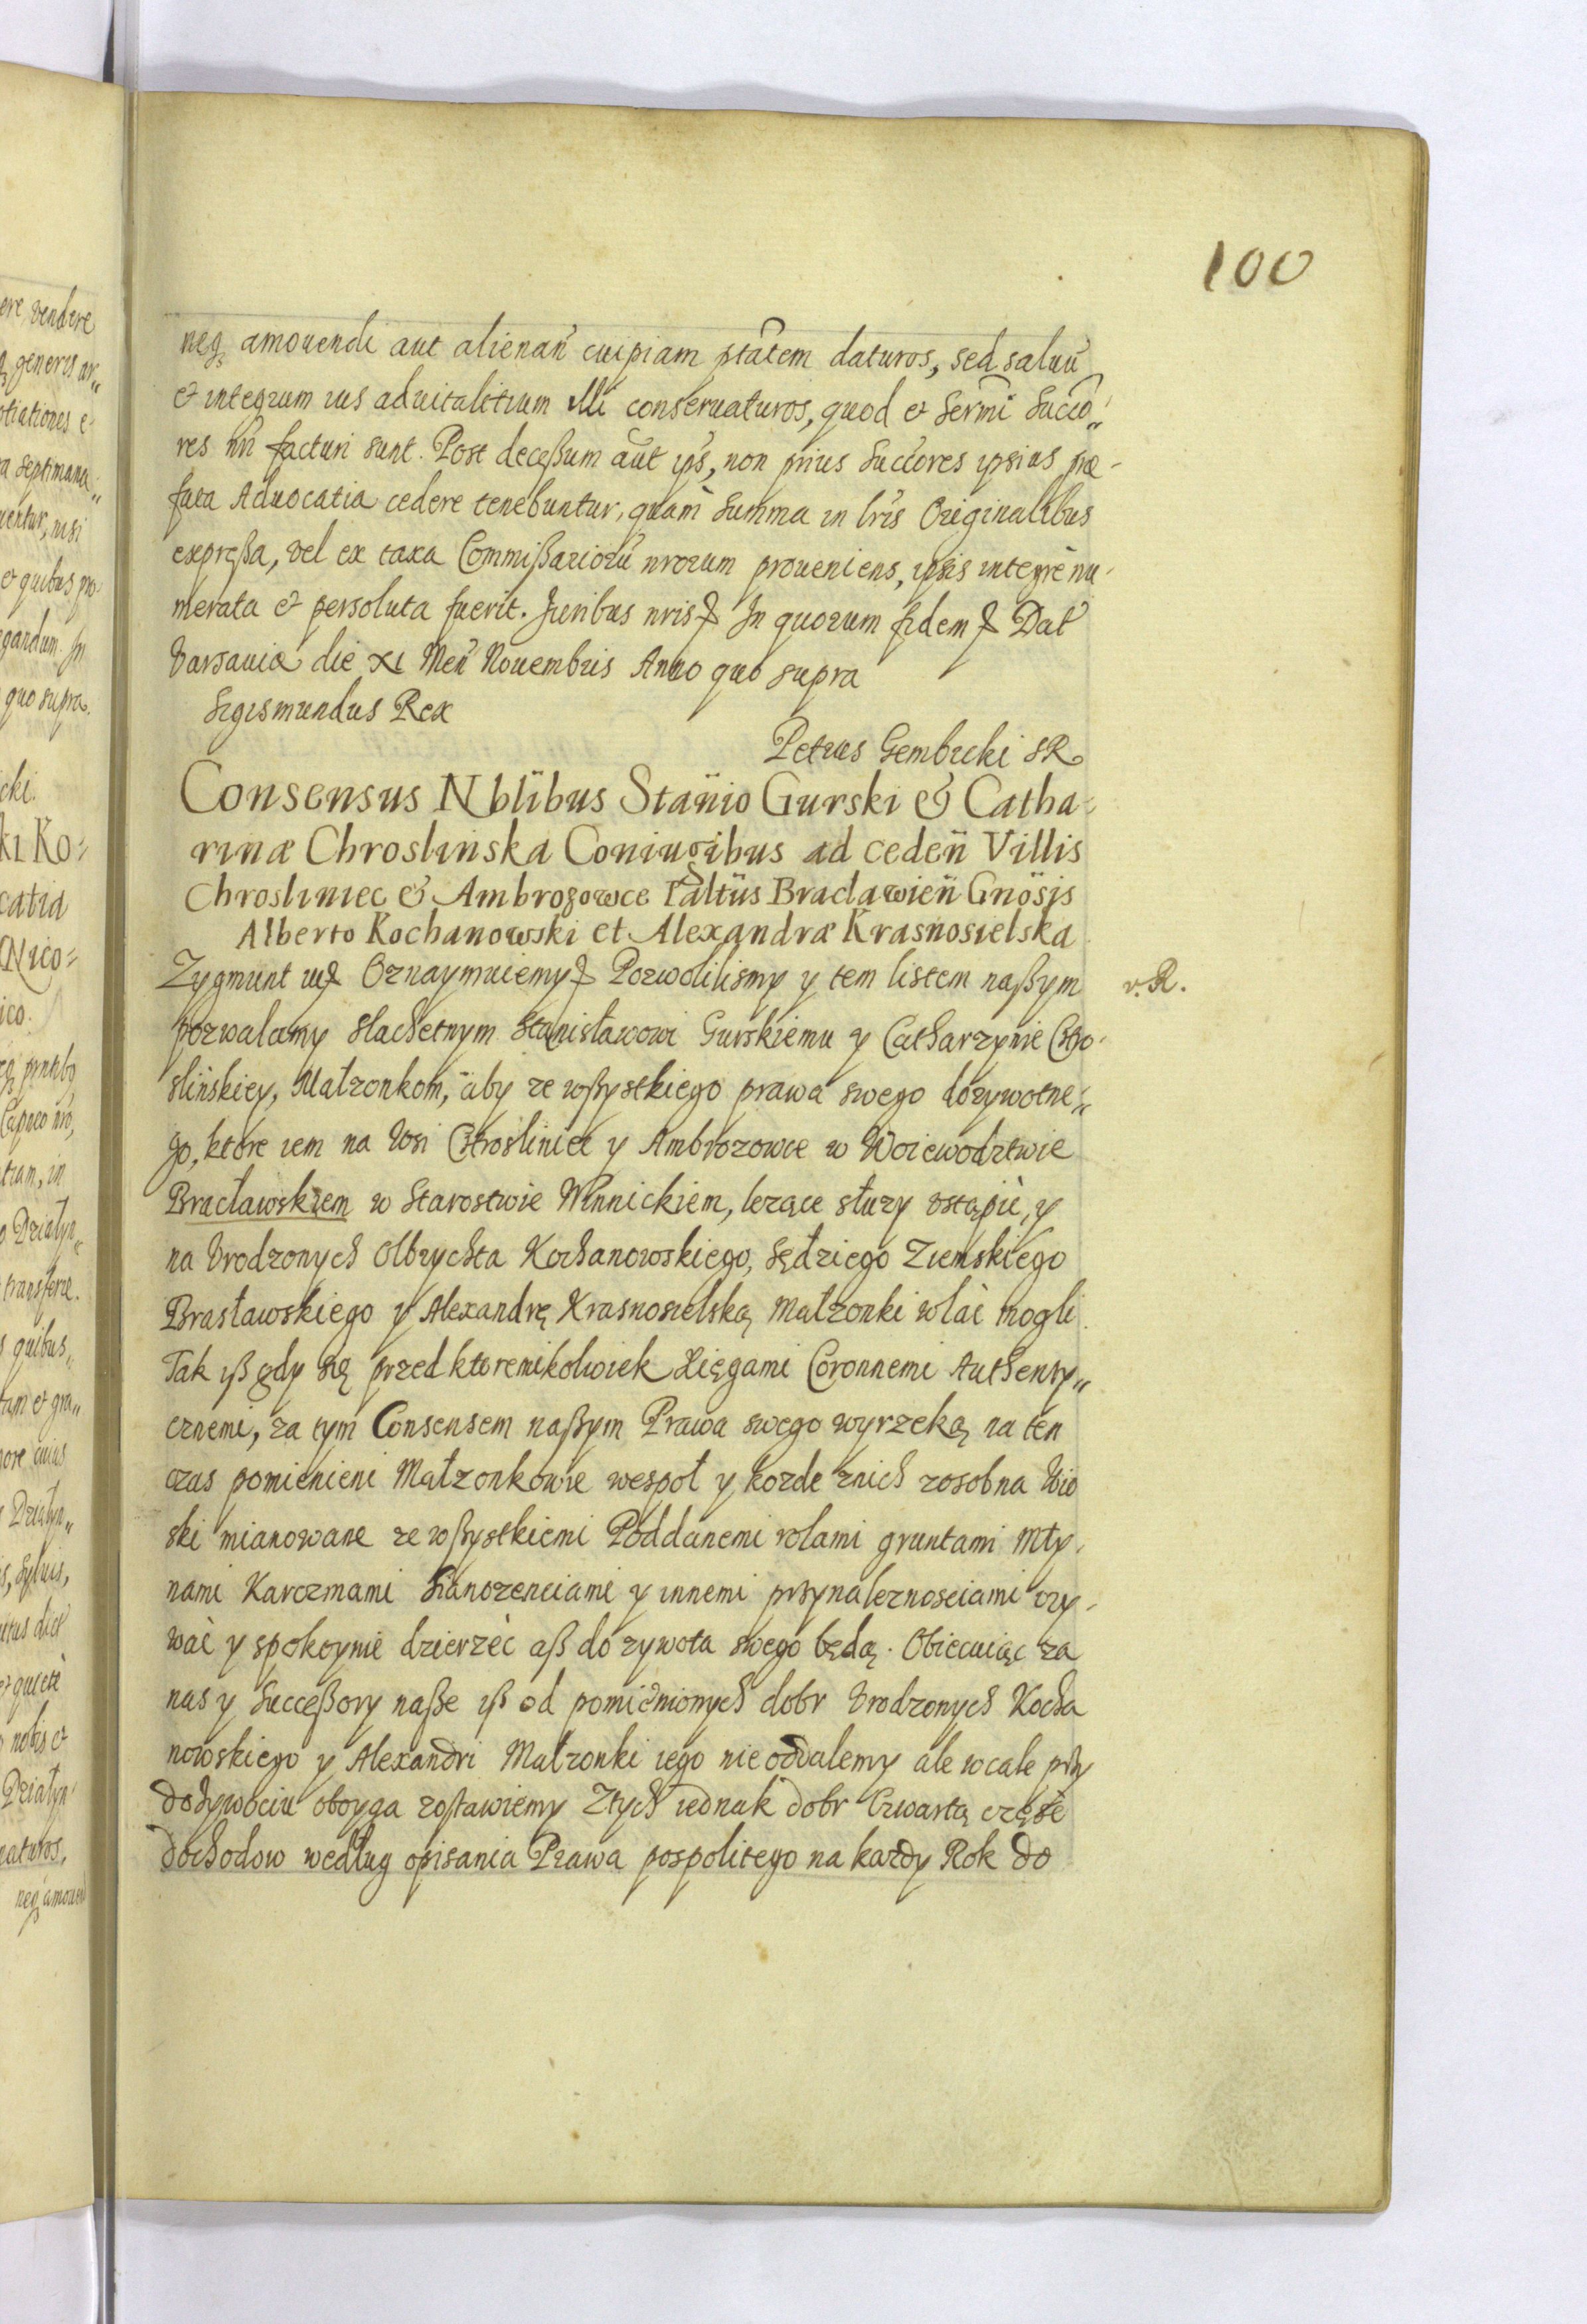 100
neqꝫ amouendi aut alienañ cuipiam ptãtem daturos, sed saluũ
et integrum ius aduitalitium illi conseruaturos, quod et Sermi Succo„
res nri facturi sunt. Post deceßum aut ips, non prius Succores ipsius præ-
fata Aduocatia cedere tenebuntur, quàm Summa in lris Originalibus
expreßa, vel ex taxa Commißarioru nrorum proueniens, ipsis integrè nu-
merata et persoluta fuerit. Juribus nris ꝛ In quorum fidem ꝛ Dat
Varsauiæ die XI Men Nouembris Anno quo supra
Sigismundus Rex
Petrus Gembicki SR
Consensus Nblibus Stanio Gurski & Catha=
rinæ Chroslinska Coniugibus ad ceden Villis
Chrosliniec & Ambrozowce Paltüs Bracławien Gnosis
Alberto Kochanowski et Alexandræ Krasnosielska
Zygmunt ꝛ Oznaymuiemy ꝛ Pozwolilismy y tem listem naßym
v. R.
pozwalamy slachetnym Stanisławowi Gurskiemu y Catharzynie Chro-
slińskiey, Małzonkom, aby ze wßystkiego prawa swego dozywotne„
go, ktore iem na Wsi Chrosliniec y Ambrozowce w Woiewodztwie
Bracławskiem w Starostwie Winnickiem, lezące słuzy vstąpić, y
na Vrodzonych Olbrychta Kochanowskiego, Sędziego Ziemskiego
Brasławskiego y Alexandrę Krasnosielską Małzonki wlać mogli.
Tak iß gdy się przed ktoremikolwiek Xięgami Coronnemi Authenty„
cznemi, za tym Consensem naßym Prawa swego wyrzeką na ten
czas pomienieni Małzonkowie wespoł y kozde znich zosobna Wio
ski mianowane ze wßystkiemi Poddanemi rolami gruntami Mły-
nami Karczmami Sianozenciami y innemi przynaleznosciami vzy-
wać y spokoynie dzierzeć aß do zywota swego będą. Obiecuiąc za
nas y Succeßory naße iß od pomienionych dobr Vrodzonych Kocha
nowskiego y Alexandri Małzonki iego nie oddalemy ale wcale przy
dozywociu oboyga zostawiemy Ztych iednak dobr Czwartą część
dochodow według opisania Prawa pospolitego na kazdy Rok do